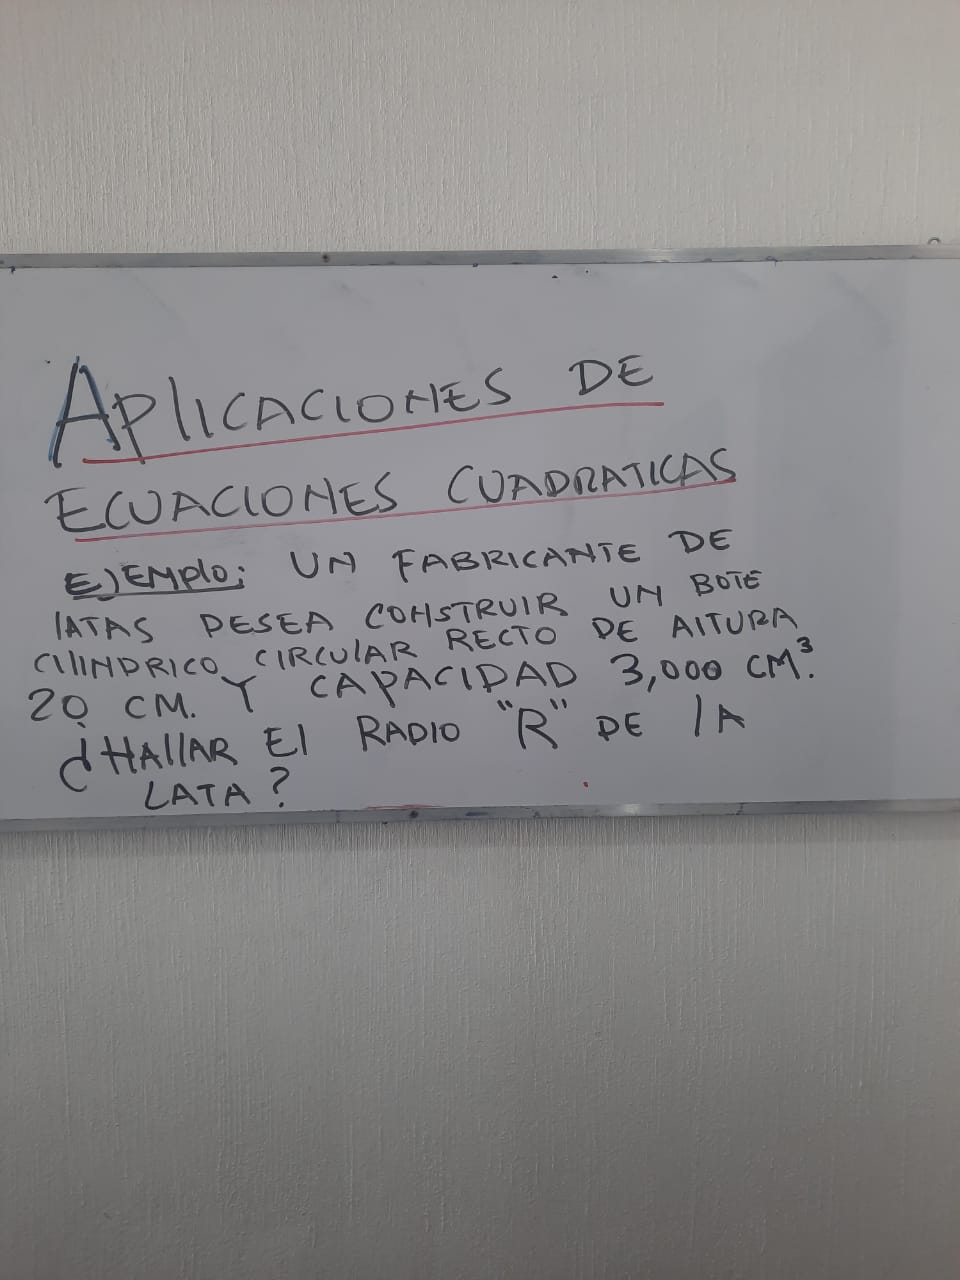 APLICACIONES DE
ECUACIONES CUADRATICAS
EJEMPLO: UN FABRICANTE DE
LATAS DESEA CONSTRUIR UN BOTE
CILINDRICO CIRCULAR RECTO DE ALTURA
20 CM. Y CAPACIDAD 3,000 CM³.
¿HALLAR EL RADIO "R" DE LA
LATA?